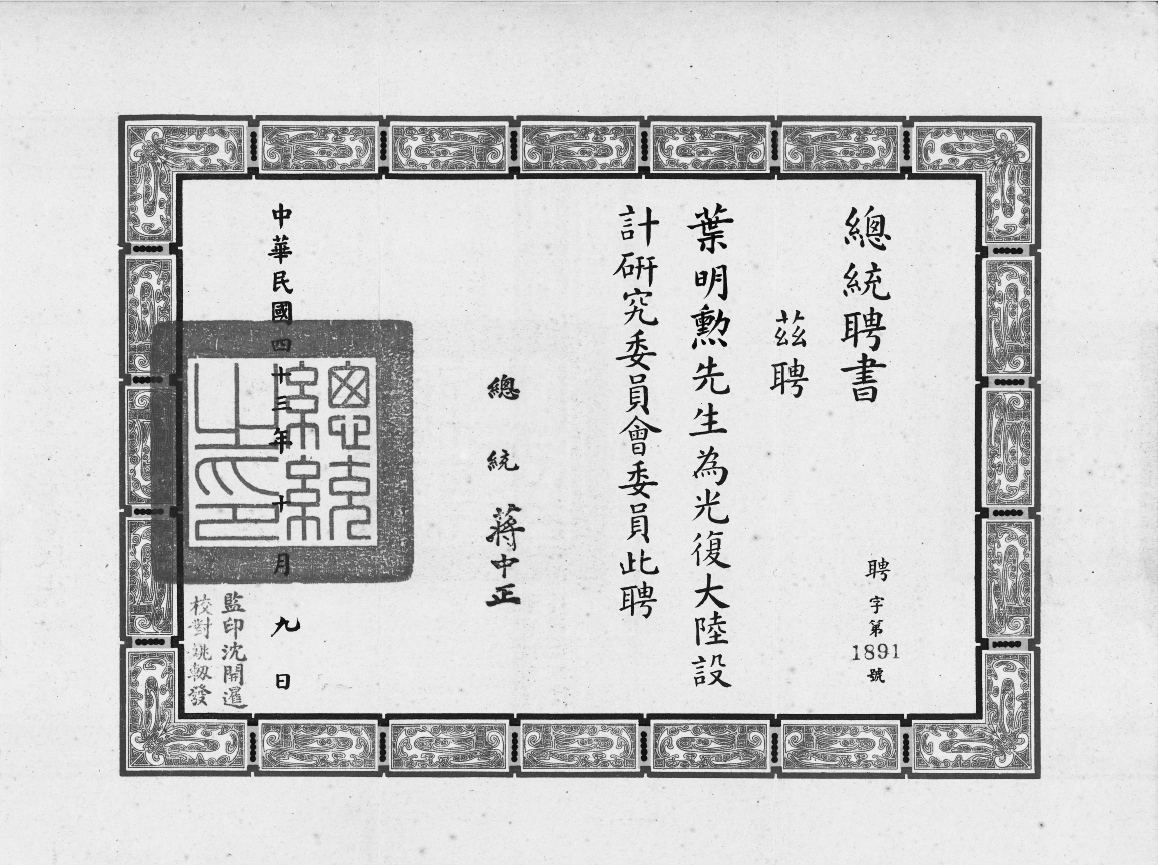 總統聘書
聘字第1891號
茲聘
葉明勲先生為光復大陸設
計研究委員會委員此聘
總統蔣中正
中華民國四十三年十月九日
總統之印
監印沈開暹
校對姚